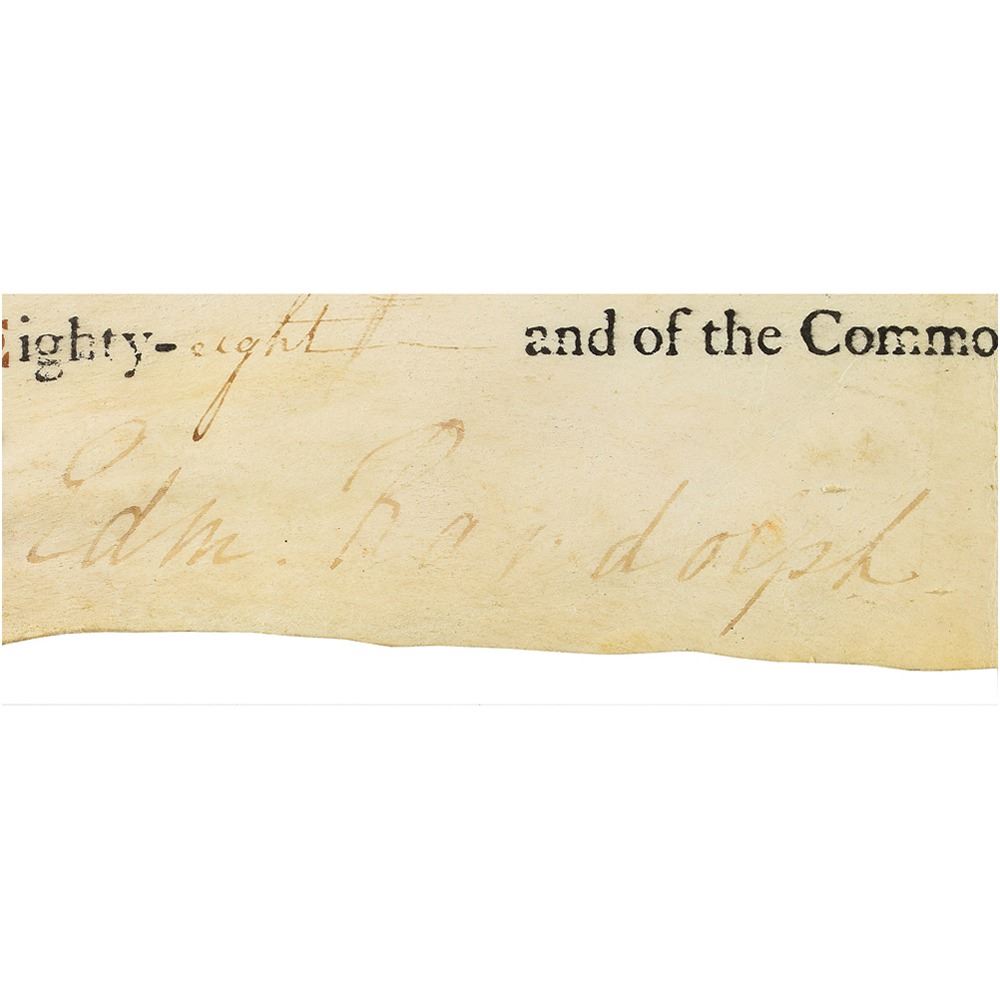 Eighty-eight and of the Commo
Edm. Randolph